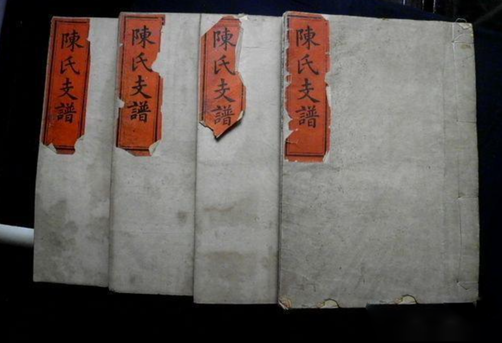 陳氏支譜
陳氏支譜
陳氏支譜
陳氏支譜